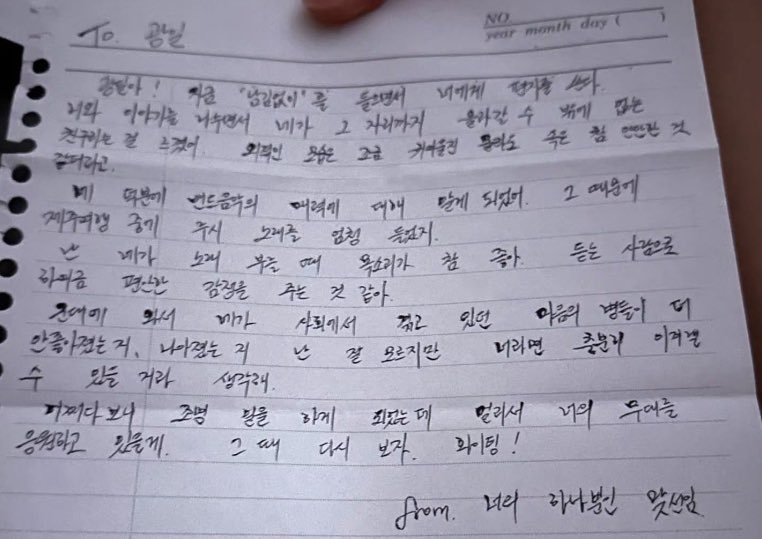 To. 광일
NO.
year month day ( )
광일아! 지금 '남김없이'를 들으면서 너에게 편지를 쓴다.
너와 이야기를 나누면서 네가 그 자리까지 올라간 수 밖에 없는
친구라는 걸 느꼈어. 외적인 모습은 조금 귀여울진 몰라도 속은 참 단단한 것
같더라고.
네 덕분에 밴드음악의 매력에 대해 알게 되었어. 그 때문에
제주여행 중에 쏜애플 노래를 엄청 들었지.
난 네가 노래 부를 때 목소리가 참 좋아. 듣는 사람으로
하여금 편안한 감정을 주는 것 같아.
군대에 와서 네가 사회에서 겪고 있던 마음의 병들이 더
안좋아졌는지, 나아졌는지 난 잘 모르지만 너라면 충분히 이겨낼
수 있을 거라 생각해.
어쩌다보니 조명 일을 하게 되었는데 멀리서 너의 무대를
응원하고 있을게. 그 때 다시 보자. 화이팅!
from. 너의 하나뿐인 맞선임